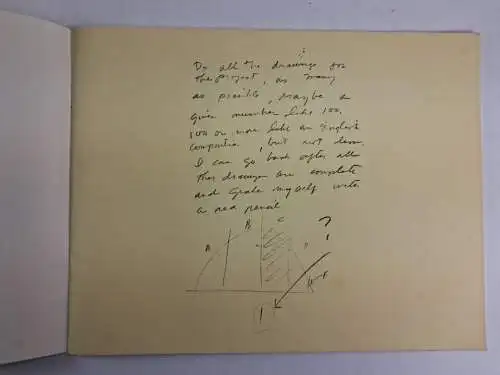 Do all the drawings for
the project, as many
as possible, maybe a
given number like 100,
100 or more like an English
composition, but not less.
I can go back after all
the drawings are complete
and grade myself with
a red pencil
A B C D F
?
!